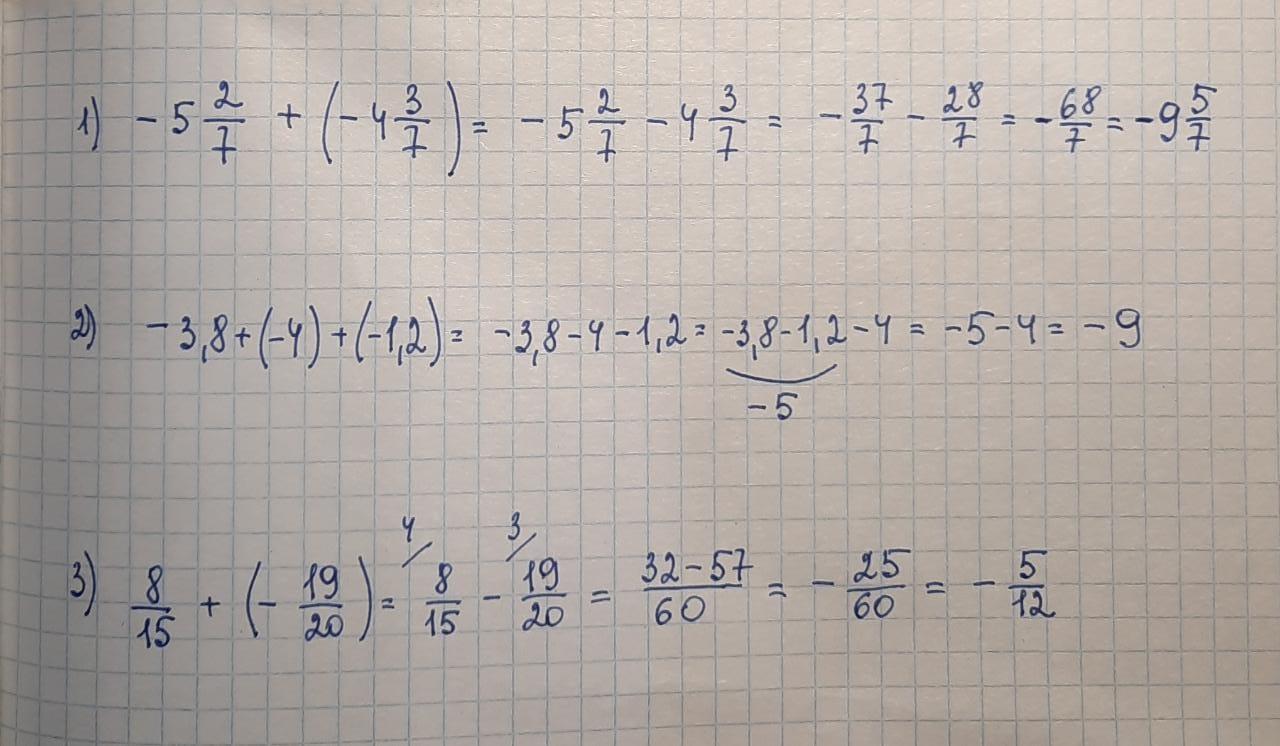 1) -5 2/7 + (-4 3/7) = -5 2/7 - 4 3/7 = -37/7 - 28/7 = -68/7 = -9 5/7
2) -3,8+(-4)+(-1,2) = -3,8-4-1,2 = -3,8-1,2-4 = -5-4 = -9
-5
4/ 3/
3) 8/15 + (-19/20) = 8/15 - 19/20 = 32-57/60 = -25/60 = -5/12